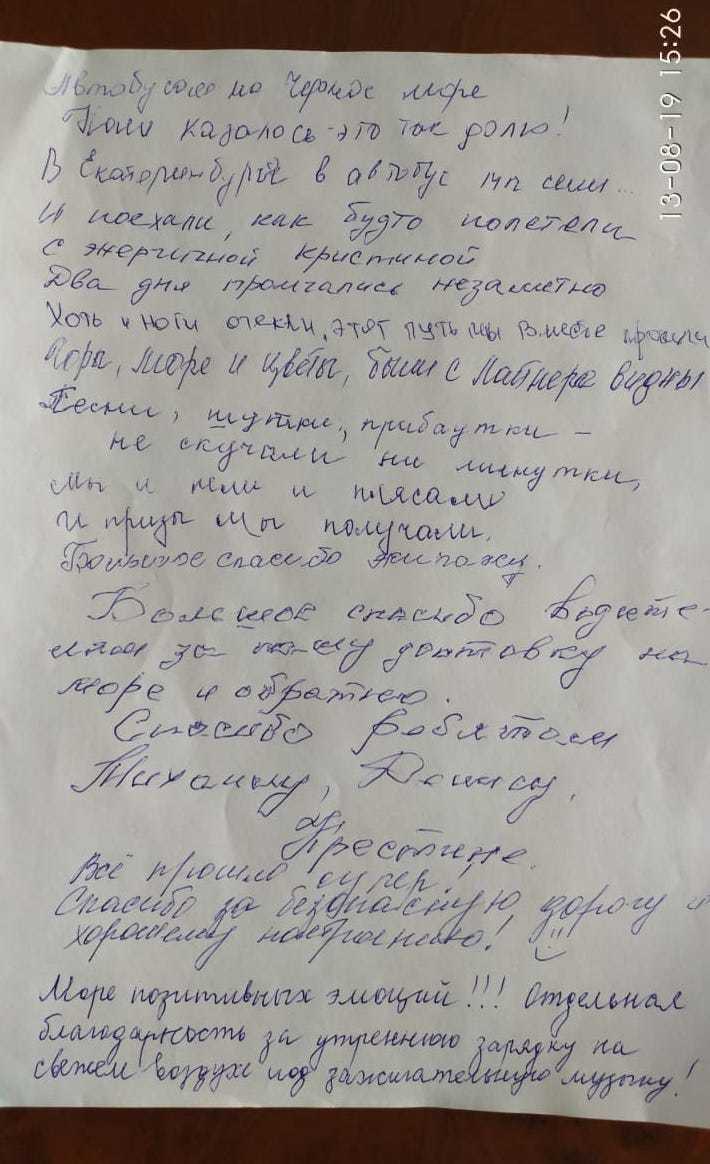 Автобусом на Черное море
Нам казалось это так долго!
В Екатеринбурге в автобус мы сели...
И поехали, как будто полетели
с энергичной кристиной
Два дня промчались незаметно
Хоть и ноги отекли, этот путь мы вместе прошли
Горы, море и цветы, были с Лайнера видны
Песни, шутки, прибаутки –
не скучали ни минутки,
мы и пели и плясали
и призы мы получали.
Большое спасибо экипажу.
Большое спасибо водите-
лям за нашу доставку на
море и обратно.
Спасибо ребятам
Михаилу, Денису,
Крестине.
Всё прошло супер!
Спасибо за безопасную дорогу и
хорошему настроению!
Море позитивных эмоций!!! Отдельная
благодарность за утреннюю зарядку на
свежем воздухе под зажигательную музыку!
13-08-19 15:26